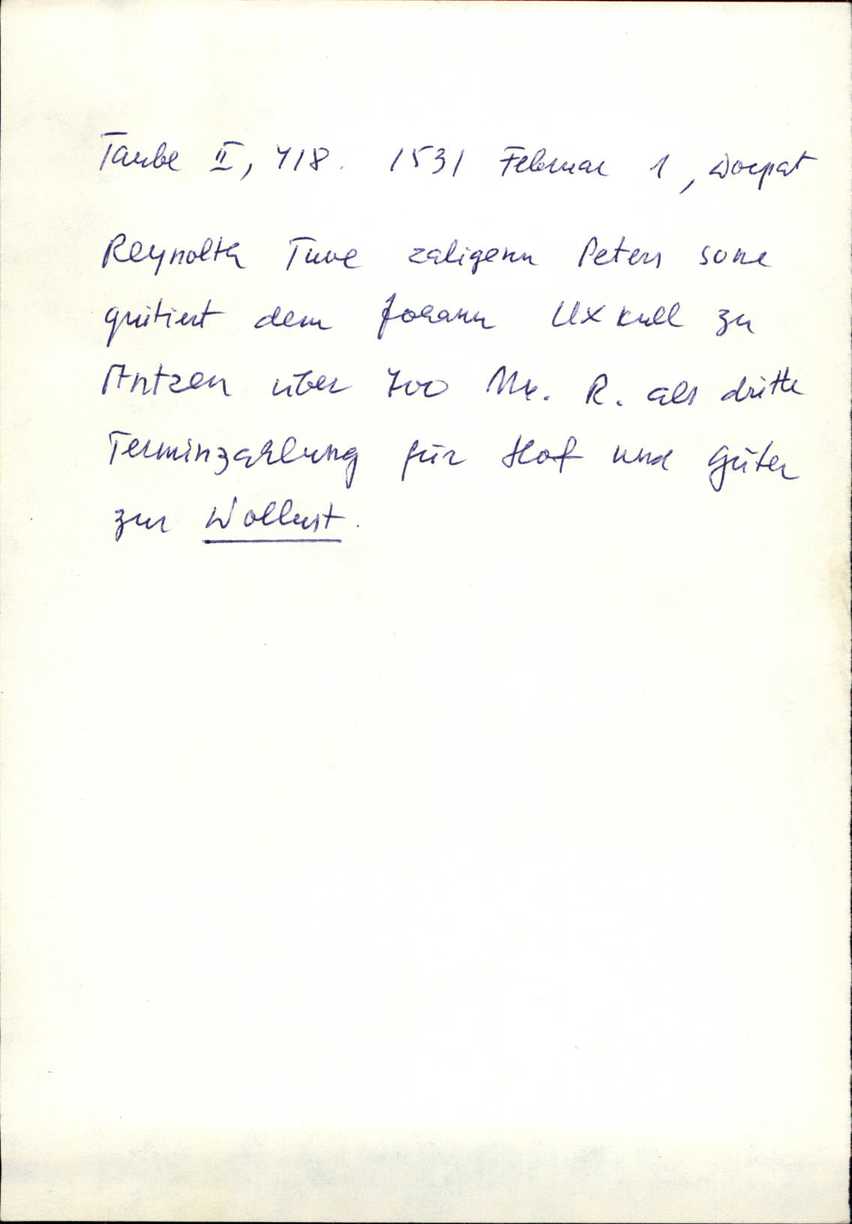 Taube II, 718. 1531 Februar 1, Dorpat
Reynolth Tuve zaligenn Peters sone
quitiert dem Johann Uxkull zu
Antzen über 700 Mk. R. als dritte
Terminzahlung für Hof und Güter
zur Wollust.